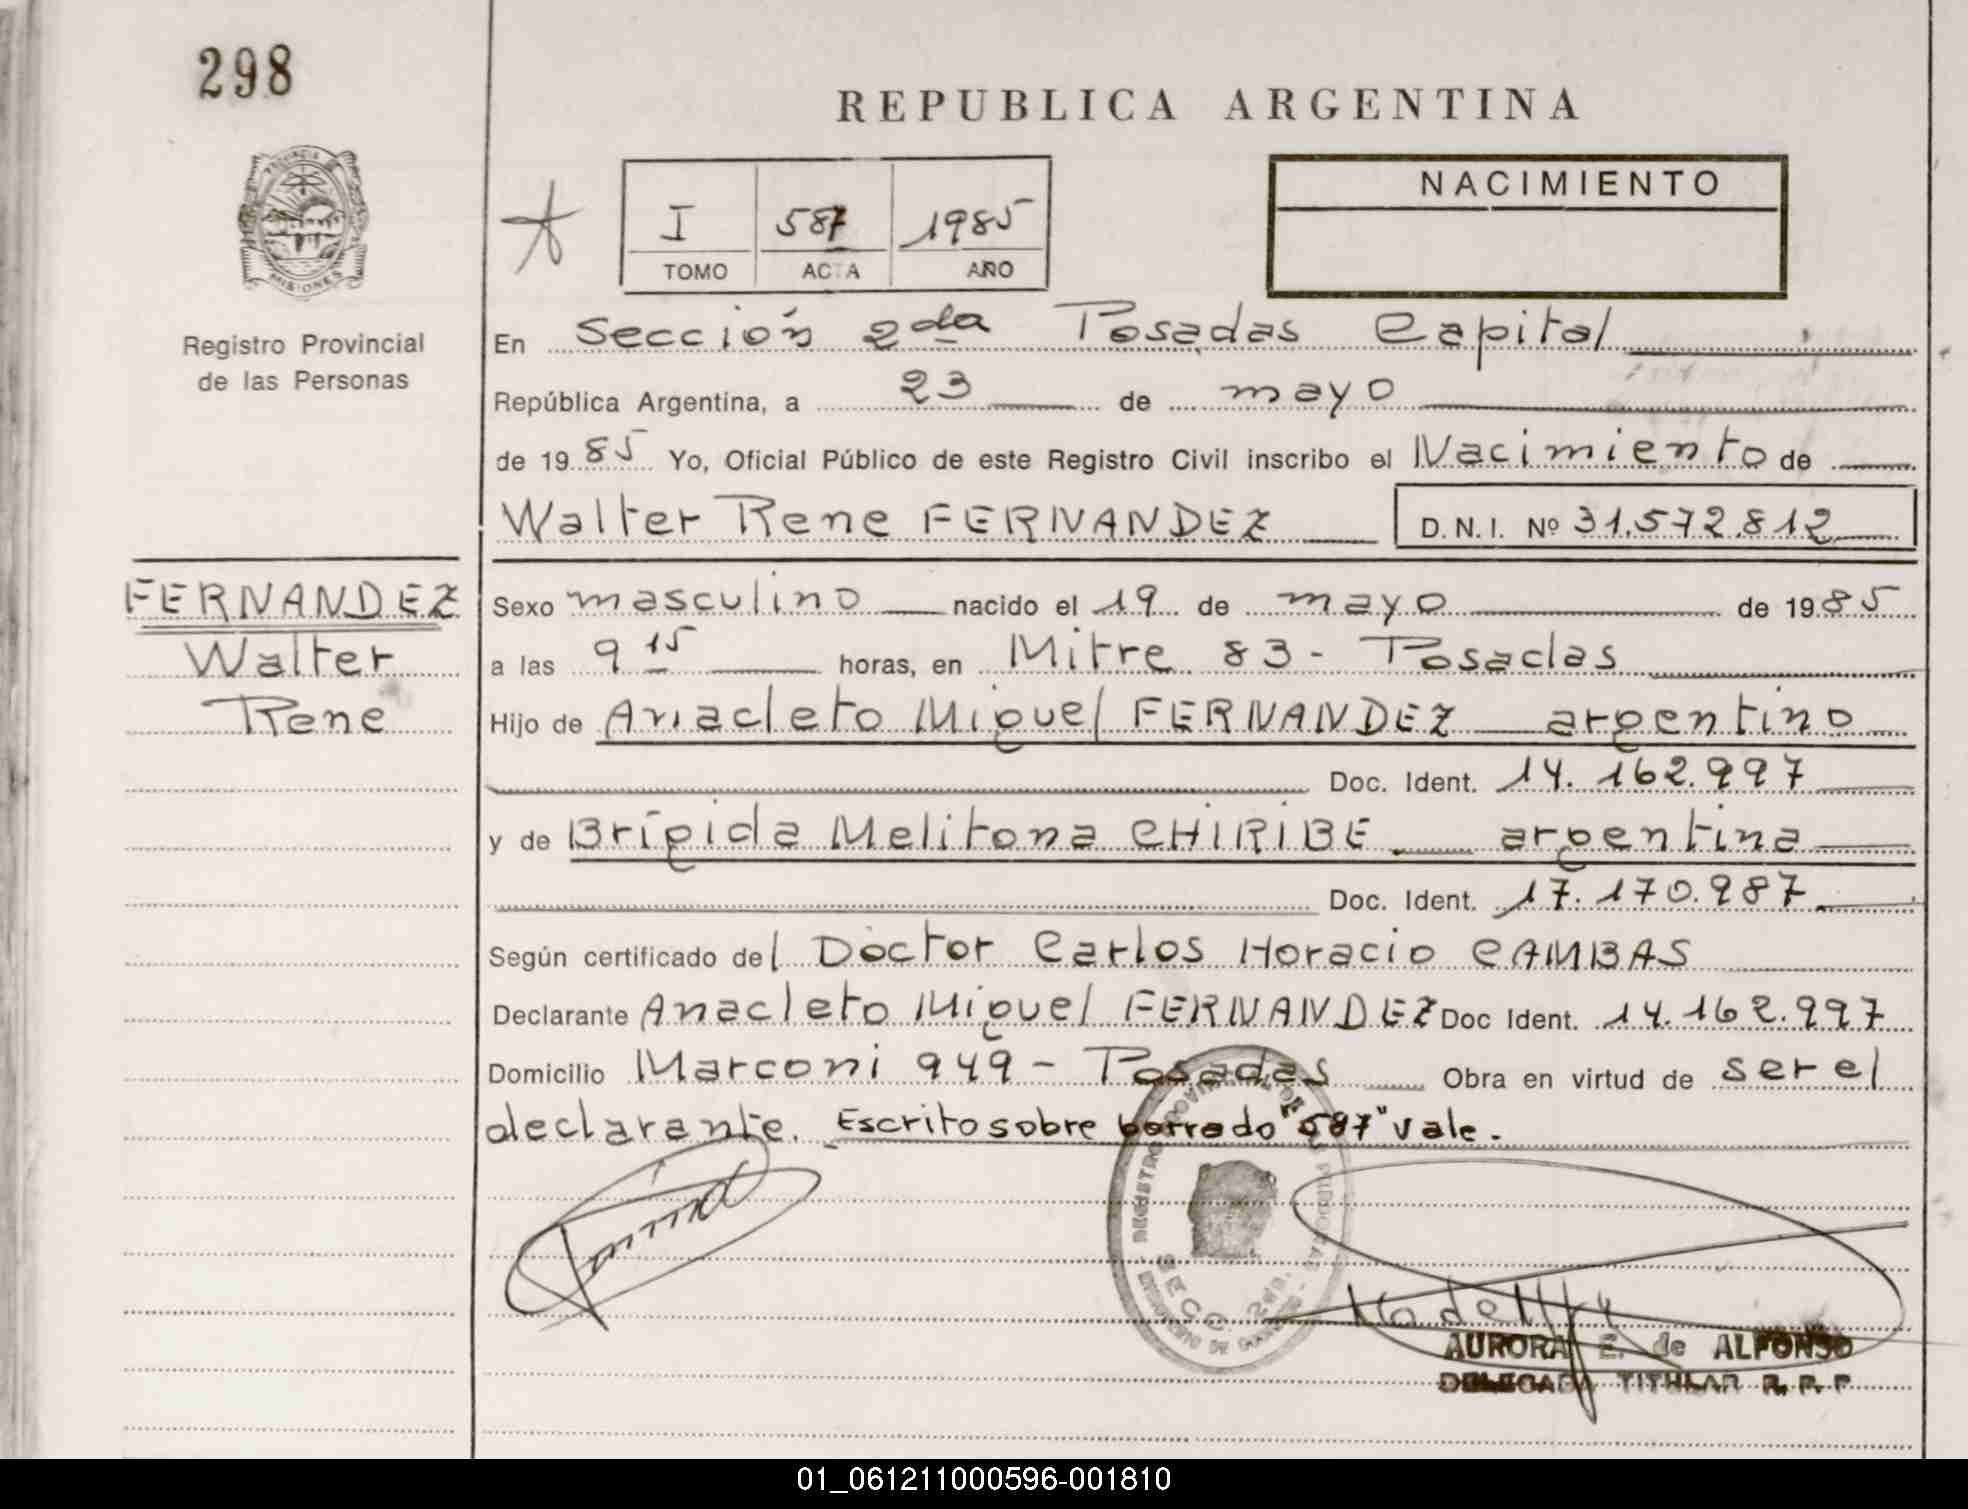 298
REPUBLICA ARGENTINA
NACIMIENTO
I 587 1985
TOMO ACTA AÑO
PROVINCIA DE
MISIONES
Registro Provincial
de las Personas
En Sección 2da Posadas Capital
República Argentina, a 23 de mayo
de 1985 Yo, Oficial Público de este Registro Civil inscribo el Nacimiento de
Walter Rene FERNANDEZ D.N.I. Nº 31.572.812
FERNANDEZ
Walter
Rene
Sexo masculino nacido el 19 de mayo de 1985
a las 9 15 horas, en Mitre 83 - Posadas
Hijo de Anacleto Miguel FERNANDEZ argentino
Doc. Ident. 14.162.997
y de Brígida Melitona CHIRIBE argentina
Doc. Ident. 17.170.987
Según certificado del Doctor Carlos Horacio CAMBAS
Declarante Anacleto Miguel FERNANDEZ Doc Ident. 14.162.997
Domicilio Marconi 949 - Posadas Obra en virtud de ser el
declarante. Escrito sobre borrado "587" vale.
SECC. 2da.
AURORA E. de ALFONSO
DELEGADA TITULAR R. P. P.
01_061211000596-001810